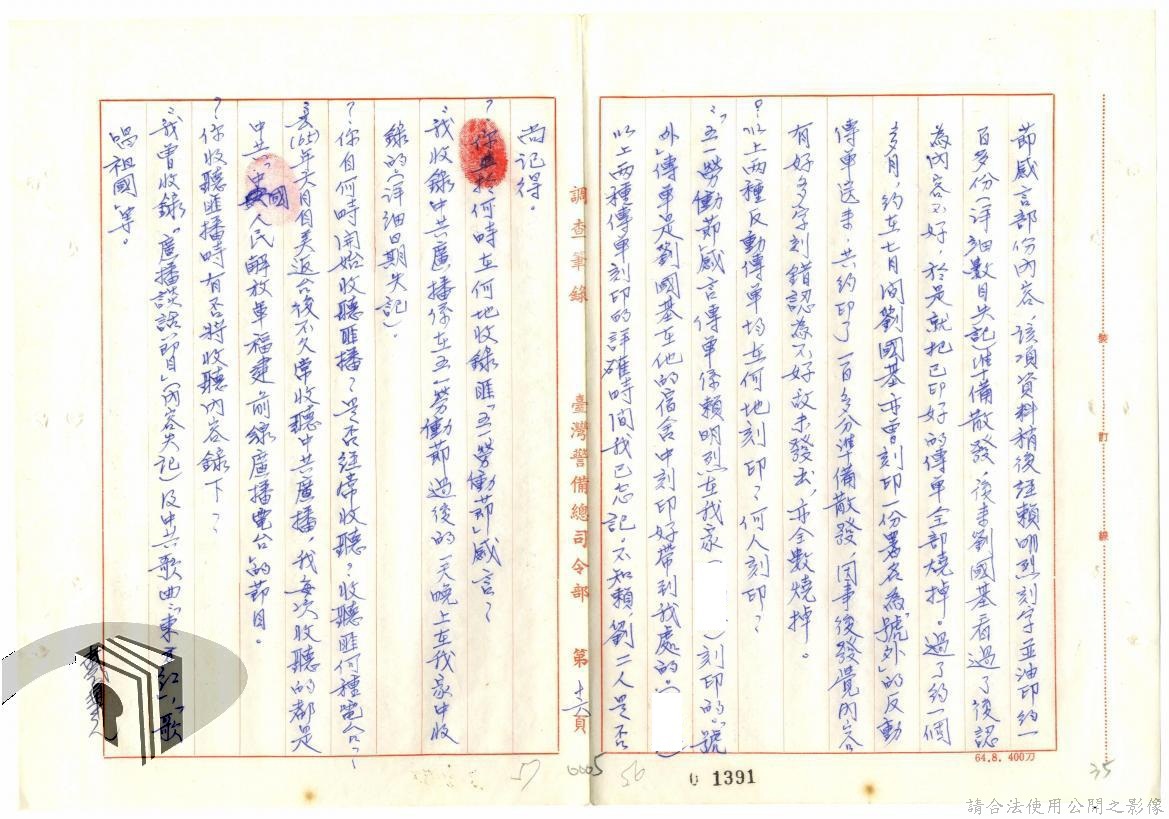 節感言部份內容,該項資料稍後証賴明烈刻字並油印約一
百多份(詳細數目失記)準備散發,後來劉國基看過了後認
為內容不好,於是就把已印好的傳单全部燒掉。過了約一個
多月,約在七月間劉國基亦曾刻印一份署名為「號外」的反動
傳单送來,共約印了一百多分準備散發,因事後發覺內容
有好多字刻錯認為不好故未發出,亦全數燒掉。
?以上兩種反動傳单均在何地刻印?何人刻印?
:「五一勞働節感言傳单係賴明烈在我家( )刻印的。「號
外」傳单是劉國基在他的宿舍中刻印好帶到我處的。( )
以上兩種傳单刻印的詳確時间我已忘記,不知賴,劉二人是否
尚記得。
?你 何時在何地收錄匪「五一勞働節」感言?
:我收錄中共廣播係在五一勞働節過後的一天晚上在我家中收
錄的(詳細日期失記)。
?你自何時開始收聽匪播?是否经常收聽?收聽匪何種電台?
:去(65)年六月自美返台後不久常收聽中共廣播,我每次收聽的都是
中共「中國人民解放軍福建前線廣播電台」的節目。
?你收聽匪播時有否將收聽內容錄下?
:我曾收錄「廣播談話節目」(內容失記)及中共歌曲「東方紅」,「歌
唱祖國」等。
調查筆錄
臺灣警備總司令部
第十六頁
裝訂線
64.8. 400刀
57 0005 56
0 1391
35
請合法使用公開之影像